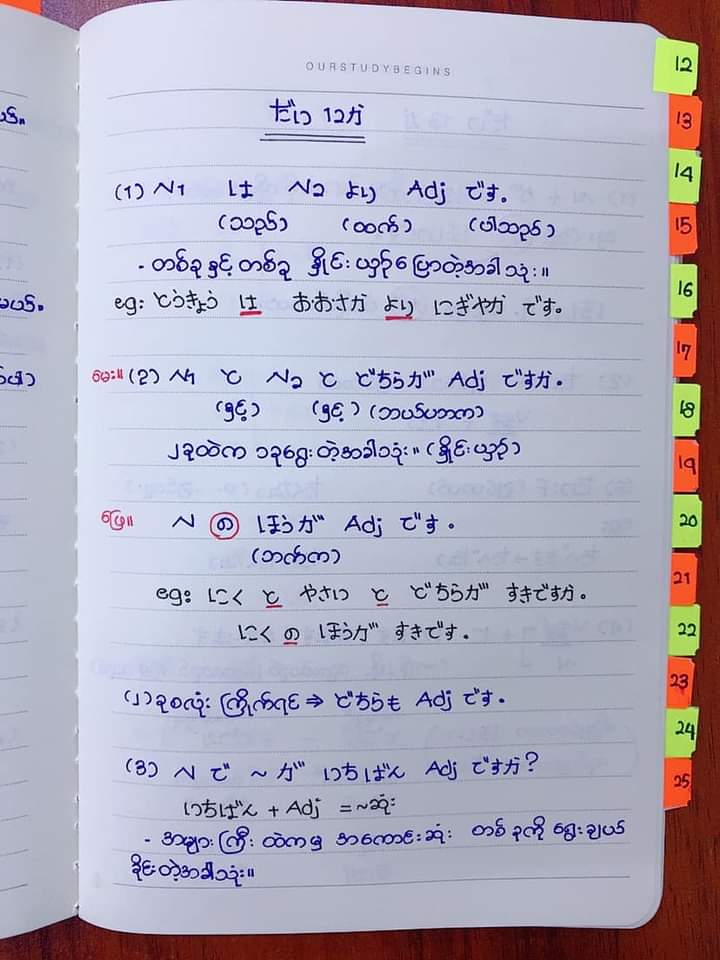 OURSTUDYBEGINS
だい 12か
(1) N1 は N2 より Adj です。
(သည်) (ထက်) (ပါသည်)
- တစ်ခုနှင့် တစ်ခု နှိုင်းယှဉ်၍ ပြောတဲ့အခါသုံး။
eg: とうきょう は おおさか より にぎやか です。
မေး။ (2) N1 と N2 と どちらが Adj ですか。
(နှင့်) (နှင့်) (ဘယ်ဟာက)
၂ခုထဲက ၁ခုရွေးတဲ့အခါသုံး။ (နှိုင်းယှဉ်)
ဖြေ။ N の ほうが Adj です。
(ဘက်က)
eg: にく と やさい と どちらが すきですか。
にく の ほうが すきです。
(၂)ခုစလုံး ကြိုက်ရင် ⇒ どちらも Adj です。
(3) N で ~ が いちばん Adj ですか?
いちばん + Adj = ~ဆုံး
- အများကြီး ထဲကမှ အကောင်းဆုံး တစ်ခုကို ရွေးချယ်
ခိုင်းတဲ့အခါသုံး။
12
13
14
15
16
17
18
19
20
21
22
23
24
25